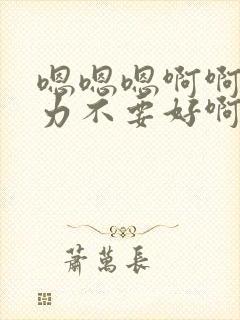 嗯嗯嗯啊啊
力不要好啊
蕭萬長